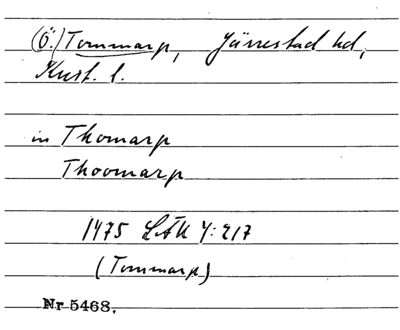 (Ö.) Tommarp, Järrestad hd,
Krist. l.
in Thomarp
Thoomarp
1475 LÄU 4:217
(Tommarp)
Nr 5468.